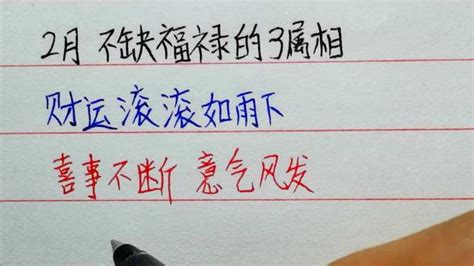 2月 不缺福禄的3属相
财运滚滚如雨下
喜事不断 意气风发